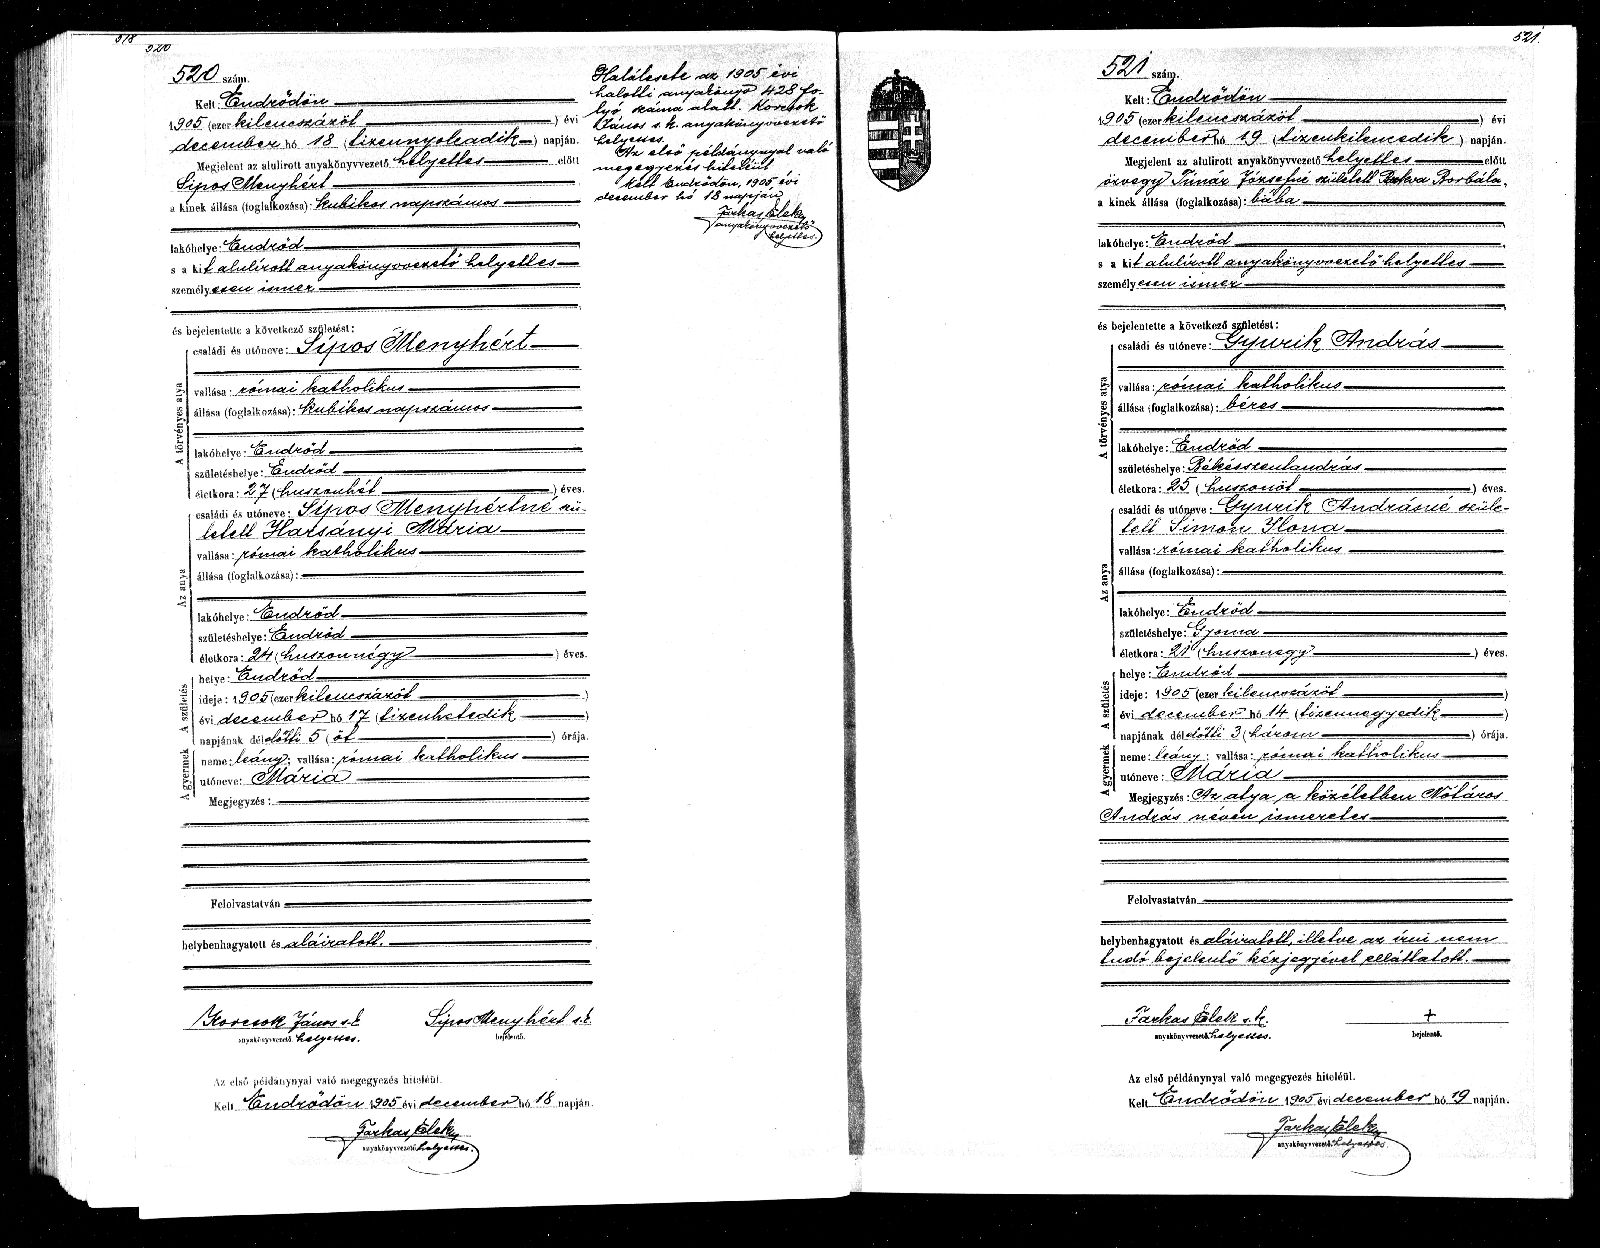 518
520
520 szám.
Kelt: Endrődön
1905 (ezer kilencszázöt ) évi
december hó 18 (tizennyolcadik ) napján.
Megjelent az alulirott anyakönyvvezető helyettes előtt
Sipos Menyhért
a kinek állása (foglalkozása): kubikos napszámos
lakóhelye: Endrőd
s a kit alulírott anyakönyvvezető helyettes
személyesen ismer
és bejelentette a következő születést:
A törvényes atya
családi és utóneve: Sípos Menyhért
vallása: római katholikus
állása (foglalkozása): kubikos napszámos
lakóhelye: Endrőd
születéshelye: Endrőd
életkora: 27 (huszonhét ) éves.
Az anya
családi és utóneve: Sípos Menyhértné szü-
letett Harsányi Mária
vallása: római katholikus
állása (foglalkozása):
lakóhelye: Endrőd
születéshelye: Endrőd
életkora: 24 (huszonnégy ) éves.
A születés
helye: Endrőd
ideje: 1905 (ezer kilencszázöt )
évi december hó 17 (tizenhetedik )
napjának délelőtti 5 (öt ) órája.
A gyermek
neme: leány; vallása: római katholikus
utóneve: Mária
Megjegyzés:
Felolvastatván
helybenhagyatott és aláiratott.
Korcsok János s.k. Sípos Menyhért s.k.
anyakönyvvezető helyettes. bejelentő.
Az első példánynyal való megegyezés hiteléül.
Kelt Endrődön 1905 évi december hó 18 napján.
Farkas Elek
anyakönyvvezető helyettes.
Halálesete az 1905 évi
halotti anyakönyv 428 fo-
lyó száma alatt. Korcsok
János s.k. anyakönyvvezető
helyettes
Az első példánynyal való
megegyezés hiteléül
Kelt Endrődön, 1905 évi
december hó 18 napján
Farkas Elek
anyakönyvvezető
helyettes.
521.
521 szám.
Kelt: Endrődön
1905 (ezer kilencszázöt ) évi
december hó 19 (tizenkilencedik ) napján.
Megjelent az alulirott anyakönyvvezető helyettes előtt
özvegy Tímár Józsefné született Borbála,
a kinek állása (foglalkozása): bába
lakóhelye: Endrőd
s a kit alulírott anyakönyvvezető helyettes
személyesen ismer
és bejelentette a következő születést:
A törvényes atya
családi és utóneve: Gyurik András
vallása: római katholikus
állása (foglalkozása): béres
lakóhelye: Endrőd
születéshelye: Békésszentandrás
életkora: 25 (huszonöt ) éves.
Az anya
családi és utóneve: Gyurik Andrásné szüle-
tett Simon Ilona
vallása: római katholikus
állása (foglalkozása):
lakóhelye: Endrőd
születéshelye: Gyoma
életkora: 21 (huszonegy ) éves.
A születés
helye: Endrőd
ideje: 1905 (ezer kilencszázöt )
évi december hó 14 (tizennegyedik )
napjának délelőtti 3 (három ) órája.
A gyermek
neme: leány; vallása: római katholikus
utóneve: Mária
Megjegyzés: Az atya a közéletben Nótáros
András néven ismeretes
Felolvastatván
helybenhagyatott és aláiratott, illetve az írni nem
tudó bejelentő kézjegyével elláttatott.
Farkas Elek s.k. +
anyakönyvvezető helyettes. bejelentő.
Az első példánynyal való megegyezés hiteléül.
Kelt Endrődön 1905 évi december hó 19 napján.
Farkas Elek
anyakönyvvezető helyettes.